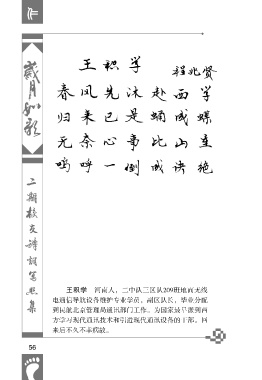 岁月如歌
二期校友诗词笔照集
王积学
程兆贤
春风先沐赴西学
归来已是蛹成蝶
无奈心事比山重
呜呼一倒成诀绝
王积学 河南人，二中队三区队209班地面无线
电通信导航设备维护专业学员，副区队长，毕业分配
到民航北京管理局通讯部门工作。为国家最早派到西
方学习现代通讯技术和引进现代通讯设备的干部。回
来后不久不幸病故。
56